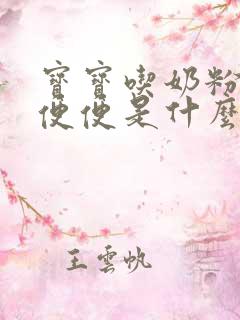 寶寶喫奶粉
便便是什麼
王雲帆